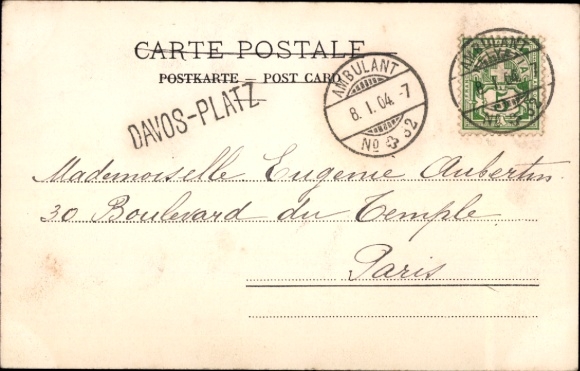 CARTE POSTALE
POSTKARTE — POST CARD
DAVOS-PLATZ
AMBULANT
8. I. 04. -7
No 32
AMBULANT
Mademoiselle Eugenie Aubertin
30 Boulevard du Temple
Paris